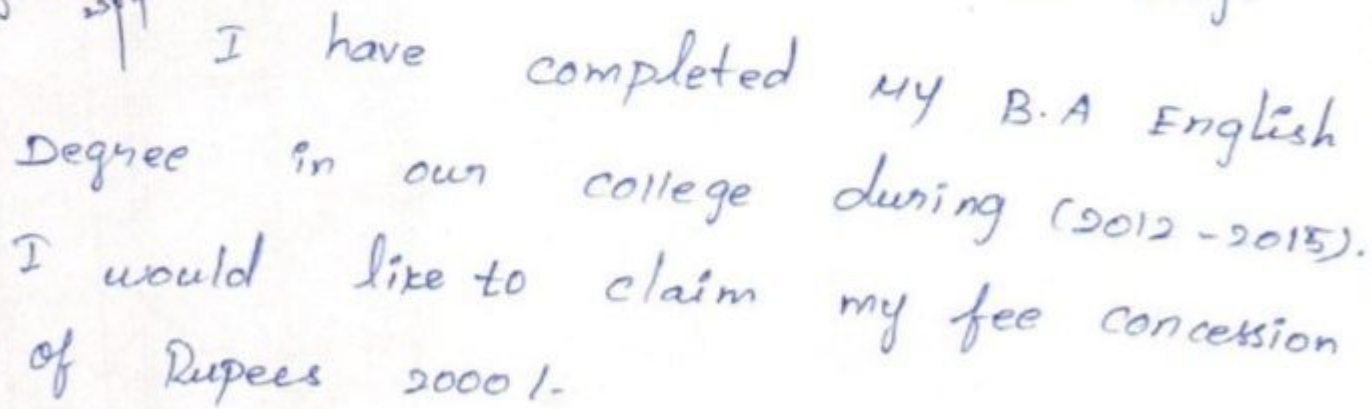 I have completed MY B.A English
Degree in our college during (2012-2015).
I would like to claim my fee concession
of Rupees 2000/-